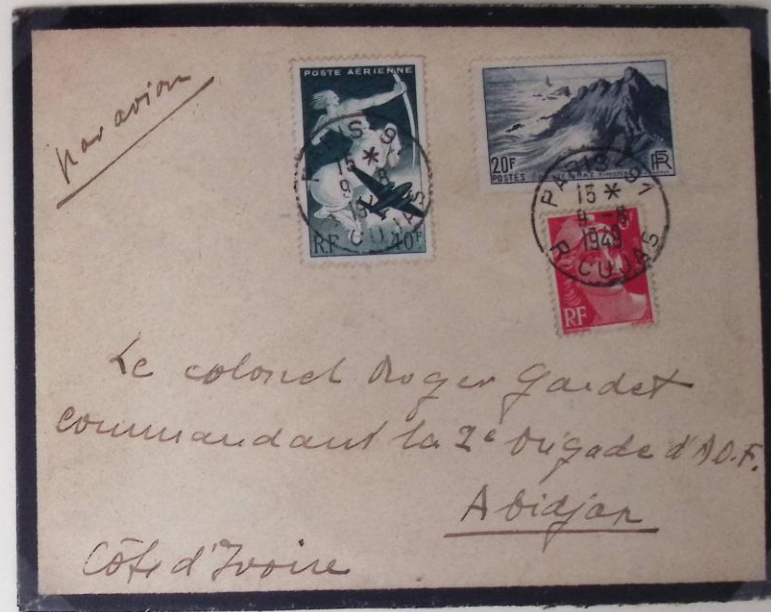 Par avion
POSTE AÉRIENNE
RF 40F
20F
POSTES
RF
PARIS V
15 *
9 - 8
1949
R. CUJAS
RF
Le colonel Roger Gardet
commandant la 2e brigade d'A.O.F.
Abidjan
Côte d'Ivoire